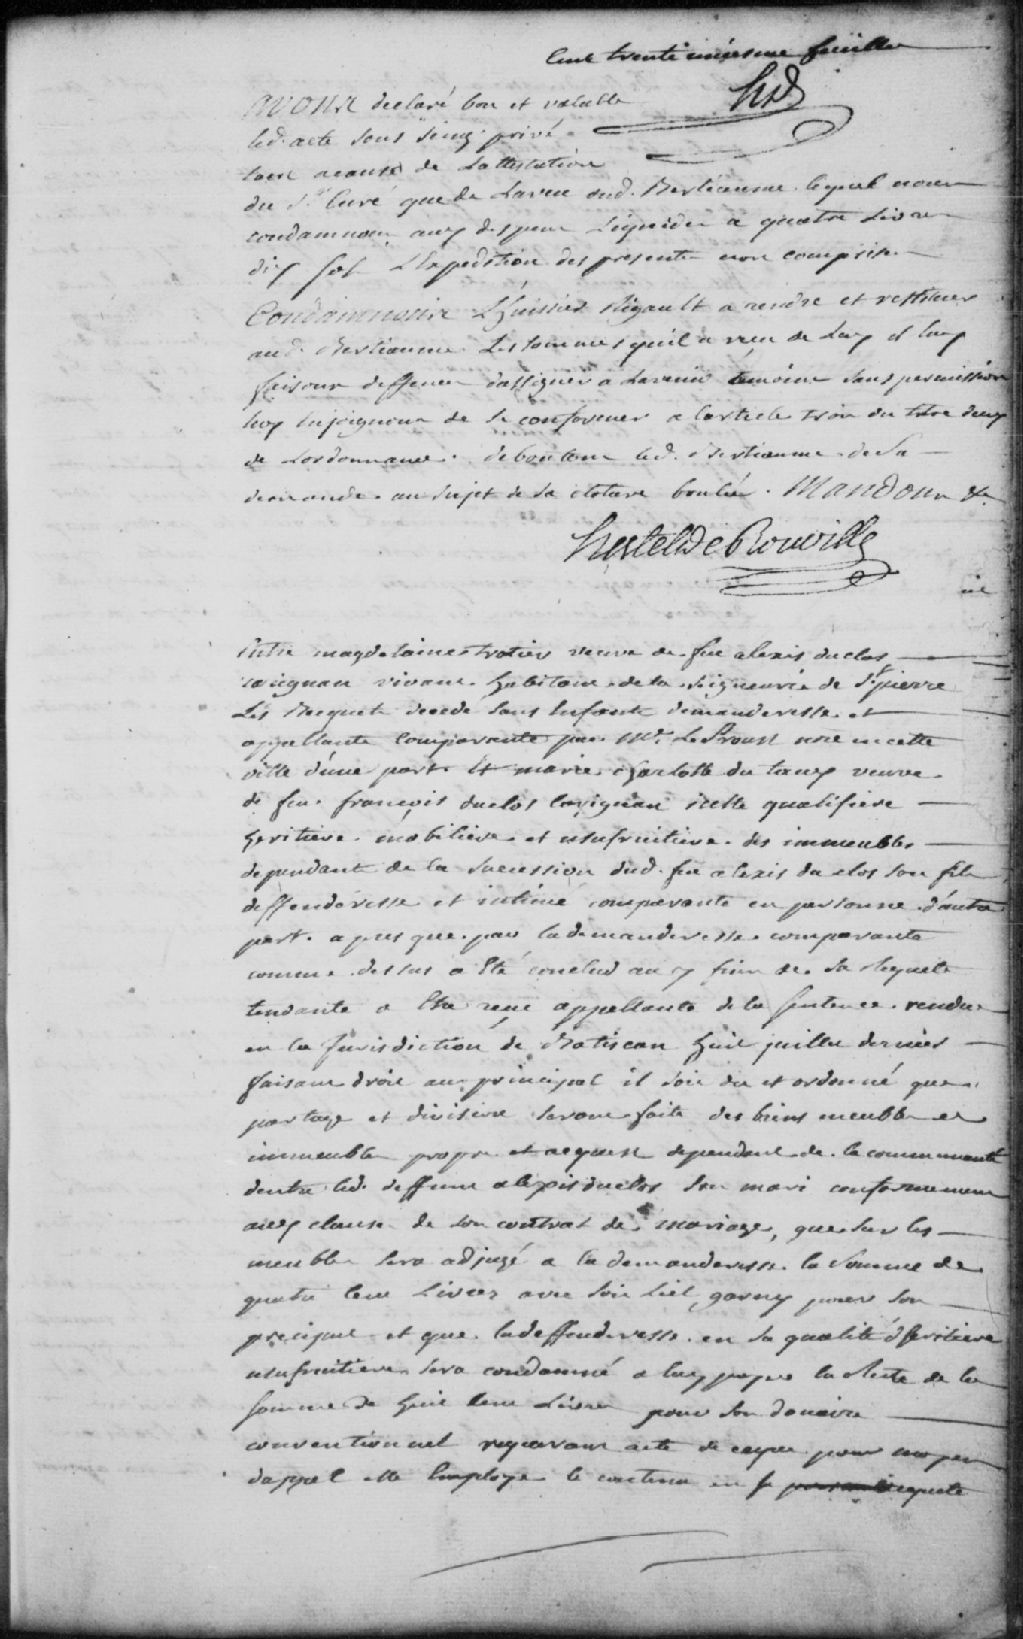 Cent trente uniesme feuillet
HR
avons declaré bon et valable
led. acte sous seing privé
tant acause de Lattestation
du Sr. Curé que de Laveu dud. Bertiaume lequel nous
condamnons aux depens Liquidés a quatre Livres
dix sols L'Expedition des presentes non comprise
Condamnons L'huissier Rigault a rendre et restituer
aud. Bertiaume Les sommes qu'il a reçu de Luy et luy
faisons deffenses dassigner a Lavenir temoins sans permission
luy Enjoignons de se conformer a l'article trois du titre deux
de Lordonnance. deboutons led. Bertiaume de sa
demande au sujet de sa cloture brulée. Mandons &a
hertel De Rouville
Entre magdelaine trotier veuve de feu alexis duclos
carignan vivant habitant de la seigneurie de St pierre
Les Becquets decedé sans Enfants demanderesse et
appellante comparante par Me. Le Proust nore en cette
ville d'une part Et marie charlotte du taux veuve
de feu françois duclos carignan icelle qualifiée
heritiere mobiliere et usufruitiere des immeubles
dependants de la succession dud. feu alexis du clos son fils
deffenderesse et intimée comparante en personne d'autre
part. apres que par la demanderesse comparante
comme dessus a Eté conclud aux fins de sa Requete
tendante a Etre reçue appellante de la sentence rendue
en la Jurisdiction de Batiscan huit juillet dernier
faisant droit au principal il soit dit et ordonné que
partage et division seront faite des biens meubles et
immeubles propres et acquest dependant de la communauté
dentre led. deffunt alexis duclos son mari conformement
aux clauses de son contrat de mariage, que sur les
meubles sera adjugé a la demanderesse la somme de
quatre cent Livres avec son Lict garny pour son
preciput et que la deffenderesse en sa qualité d'heritiere
usufruitiere sera condamné a luy payer la Rente de la
somme de huit cent Livres pour son douaire
conventionnel requerant acte de ceque pour moyens
dappel elle Employe le contenu en sa Requete